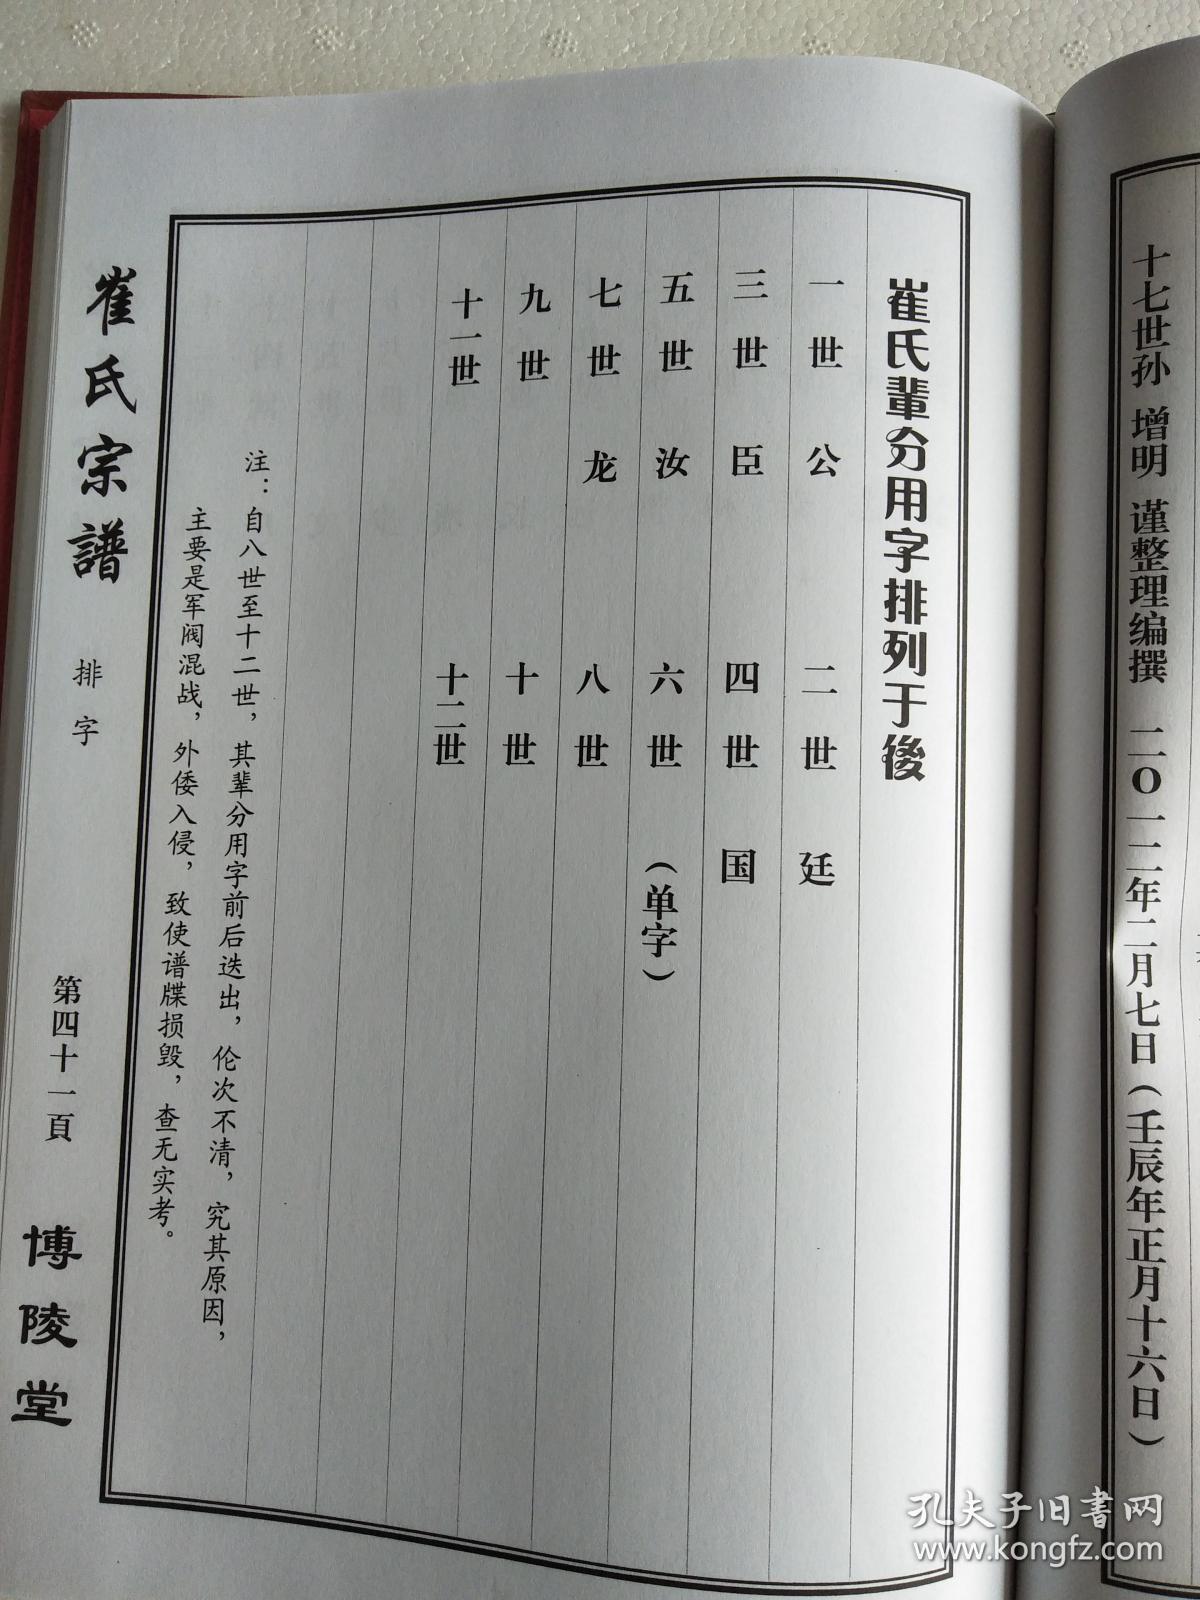 十七世孙 增明 谨整理编撰 二〇一二年二月七日（壬辰年正月十六日）
崔氏輩分用字排列于後
一世 公 二世 廷
三世 臣 四世 国
五世 汝 六世（单字）
七世 龙 八世
九世 十世
十一世 十二世
注：自八世至十二世，其辈分用字前后迭出，伦次不清，究其原因，
主要是军阀混战，外倭入侵，致使谱牒损毁，查无实考。
崔氏宗譜 排字 第四十一頁 博陵堂
孔夫子旧书网
www.kongfz.com